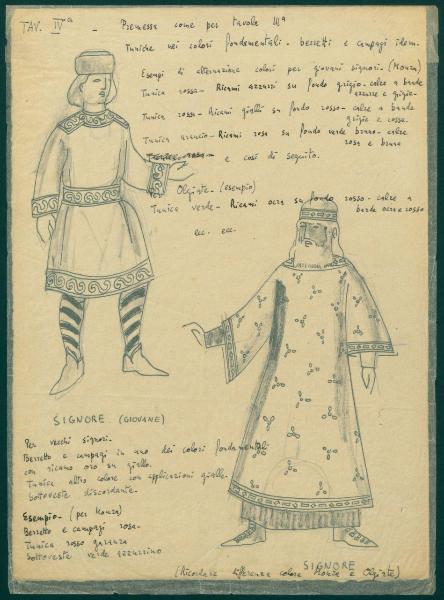 TAV. IVª - Premessa come per tavola IIIª
Tuniche nei colori fondamentali - berretti e campagi idem.
Esempi di alternazione colori per giovani signori - (Monza)
Tunica rossa - Ricami azzurri su fondo grigio - calze a bande
azzurre e grigie -
Tunica rossa - Ricami gialli su fondo rosso - calze a bande
grigie e rosse.
Tunica arancio - Ricami rosa su fondo verde bruno - calze
rosa e bruna
e così di seguito.
Per Olginate - (esempio)
Tunica verde - Ricami ocra su fondo rosso - calze a
bande ocra e rosso
ecc. ecc.
SIGNORE (GIOVANE)
Per vecchi signori -
Berretto e campagi in uno dei colori fondamentali
con ricamo oro su giallo.
Tunica altro colore con applicazioni gialle.
Sottoveste discordante.
Esempio - (per Monza)
Berretto e campagi rosa -
Tunica rosso garanza
Sottoveste verde azzurrino
SIGNORE
(Ricordare differenza colore Monza e Olginate)